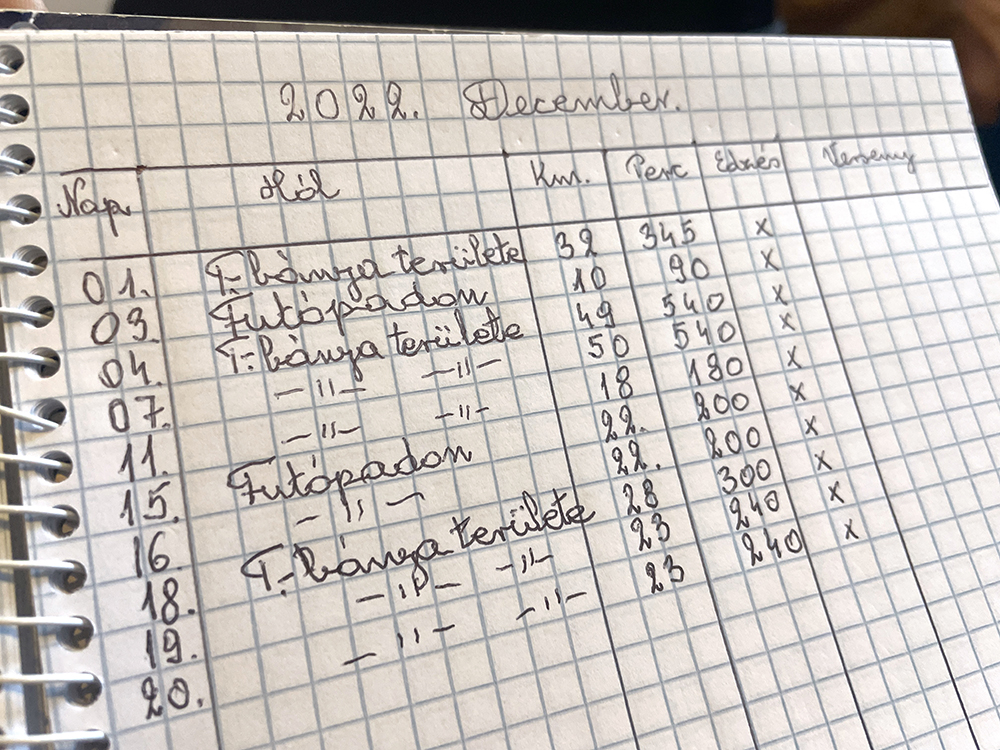 2022. December.
Nap Hól Km. Perc Edzés Verseny
01. T-bánya területe 32 345 x
03. Futópadon 10 90 x
04. T-bánya területe 49 540 x
07. -"- -"- 50 540 x
11. -"- -"- 18 180 x
15. Futópadon 22. 200 x
16. -"- 22. 200 x
18. T-bánya területe 28 300 x
19. -"- -"- 23 240 x
20. -"- -"- 23 240 x